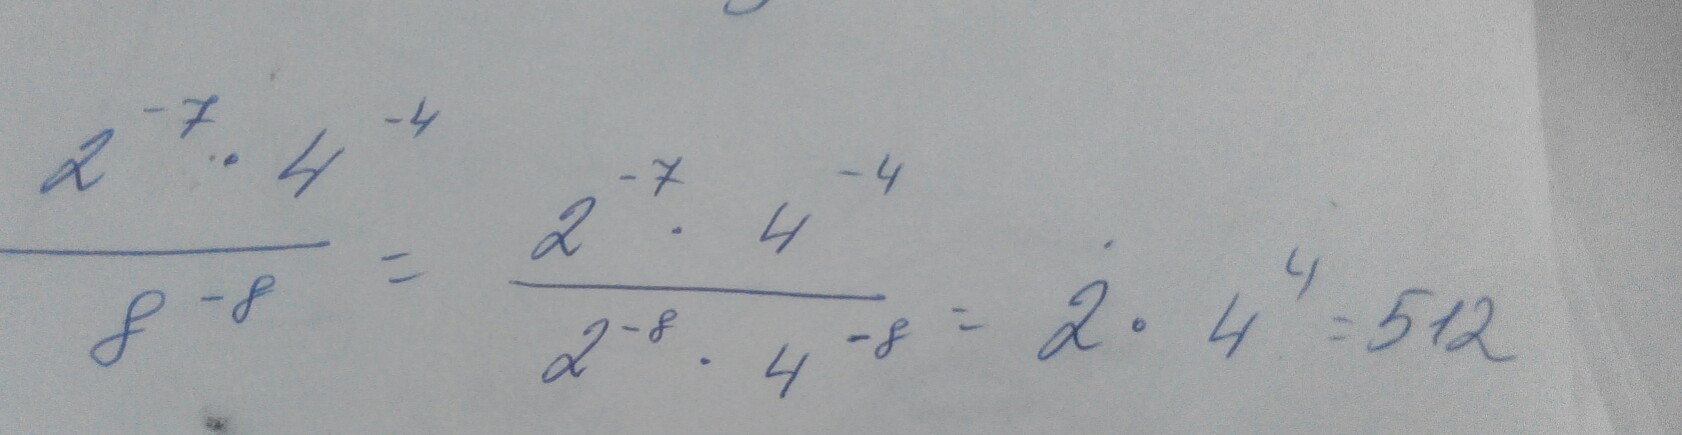 2⁻⁷ · 4⁻⁴ / 8⁻⁸ = 2⁻⁷ · 4⁻⁴ / 2⁻⁸ · 4⁻⁸ = 2 · 4⁴ = 512